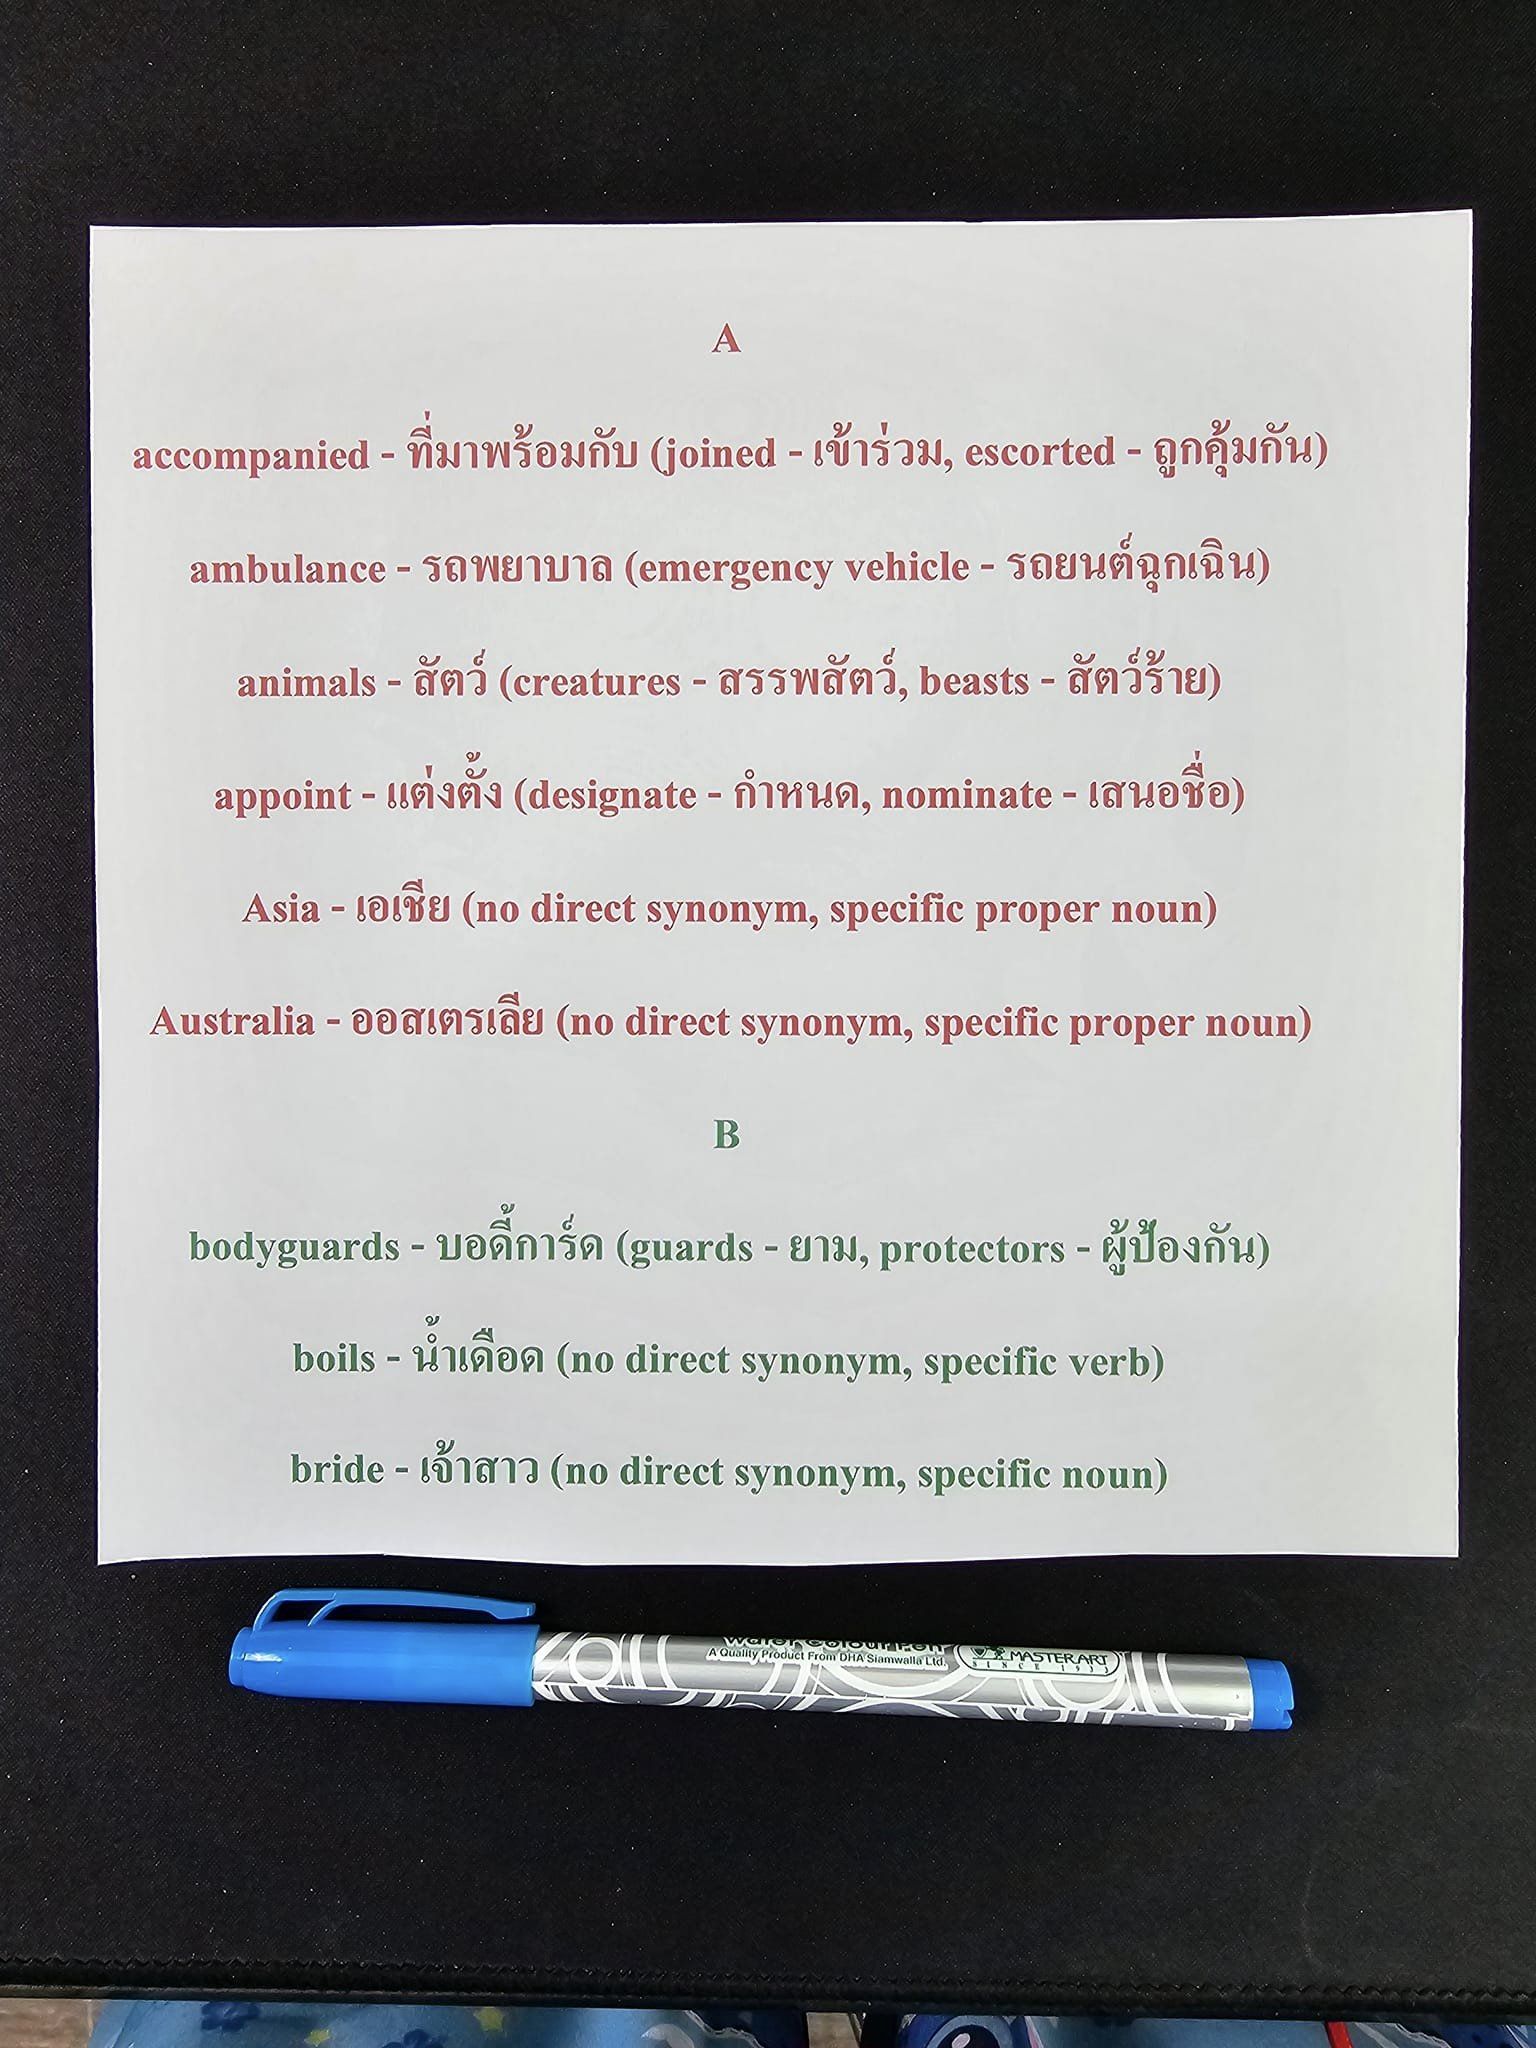 A
accompanied - ที่มาพร้อมกับ (joined - เข้าร่วม, escorted - ถูกคุ้มกัน)
ambulance - รถพยาบาล (emergency vehicle - รถยนต์ฉุกเฉิน)
animals - สัตว์ (creatures - สรรพสัตว์, beasts - สัตว์ร้าย)
appoint - แต่งตั้ง (designate - กำหนด, nominate - เสนอชื่อ)
Asia - เอเชีย (no direct synonym, specific proper noun)
Australia - ออสเตรเลีย (no direct synonym, specific proper noun)
B
bodyguards - บอดี้การ์ด (guards - ยาม, protectors - ผู้ป้องกัน)
boils - น้ำเดือด (no direct synonym, specific verb)
bride - เจ้าสาว (no direct synonym, specific noun)
Water Colour Pen
A Quality Product From DHA Siamwalla Ltd.
MASTERART
SINCE 1933